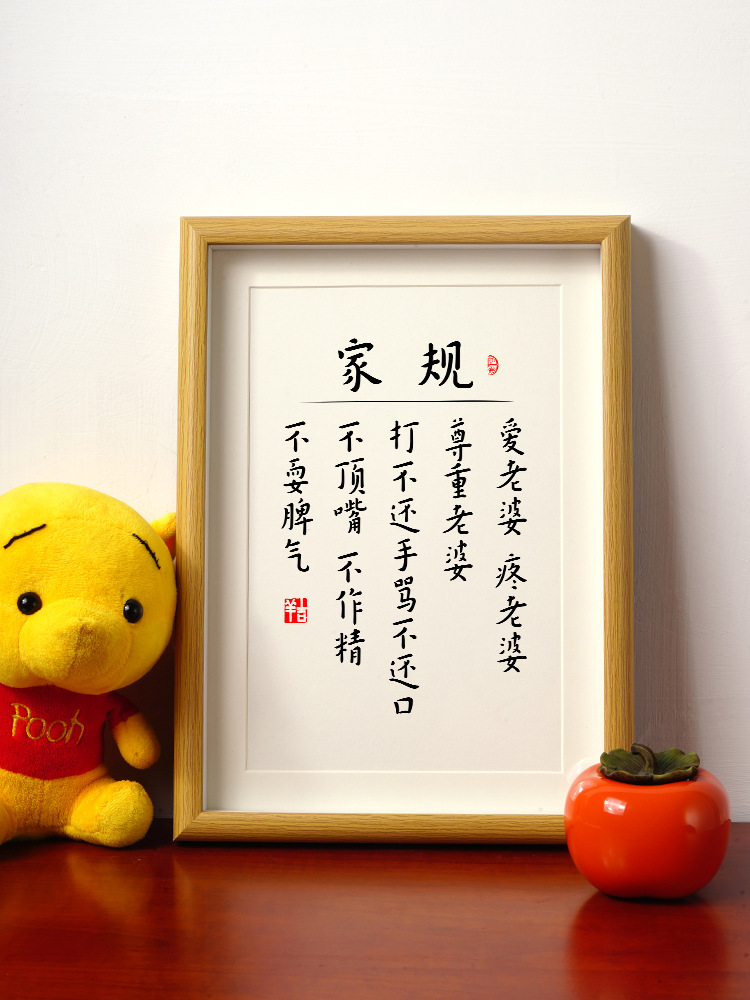 家规
爱老婆 疼老婆
尊重老婆
打不还手骂不还口
不顶嘴 不作精
不耍脾气
吉羊
Pooh